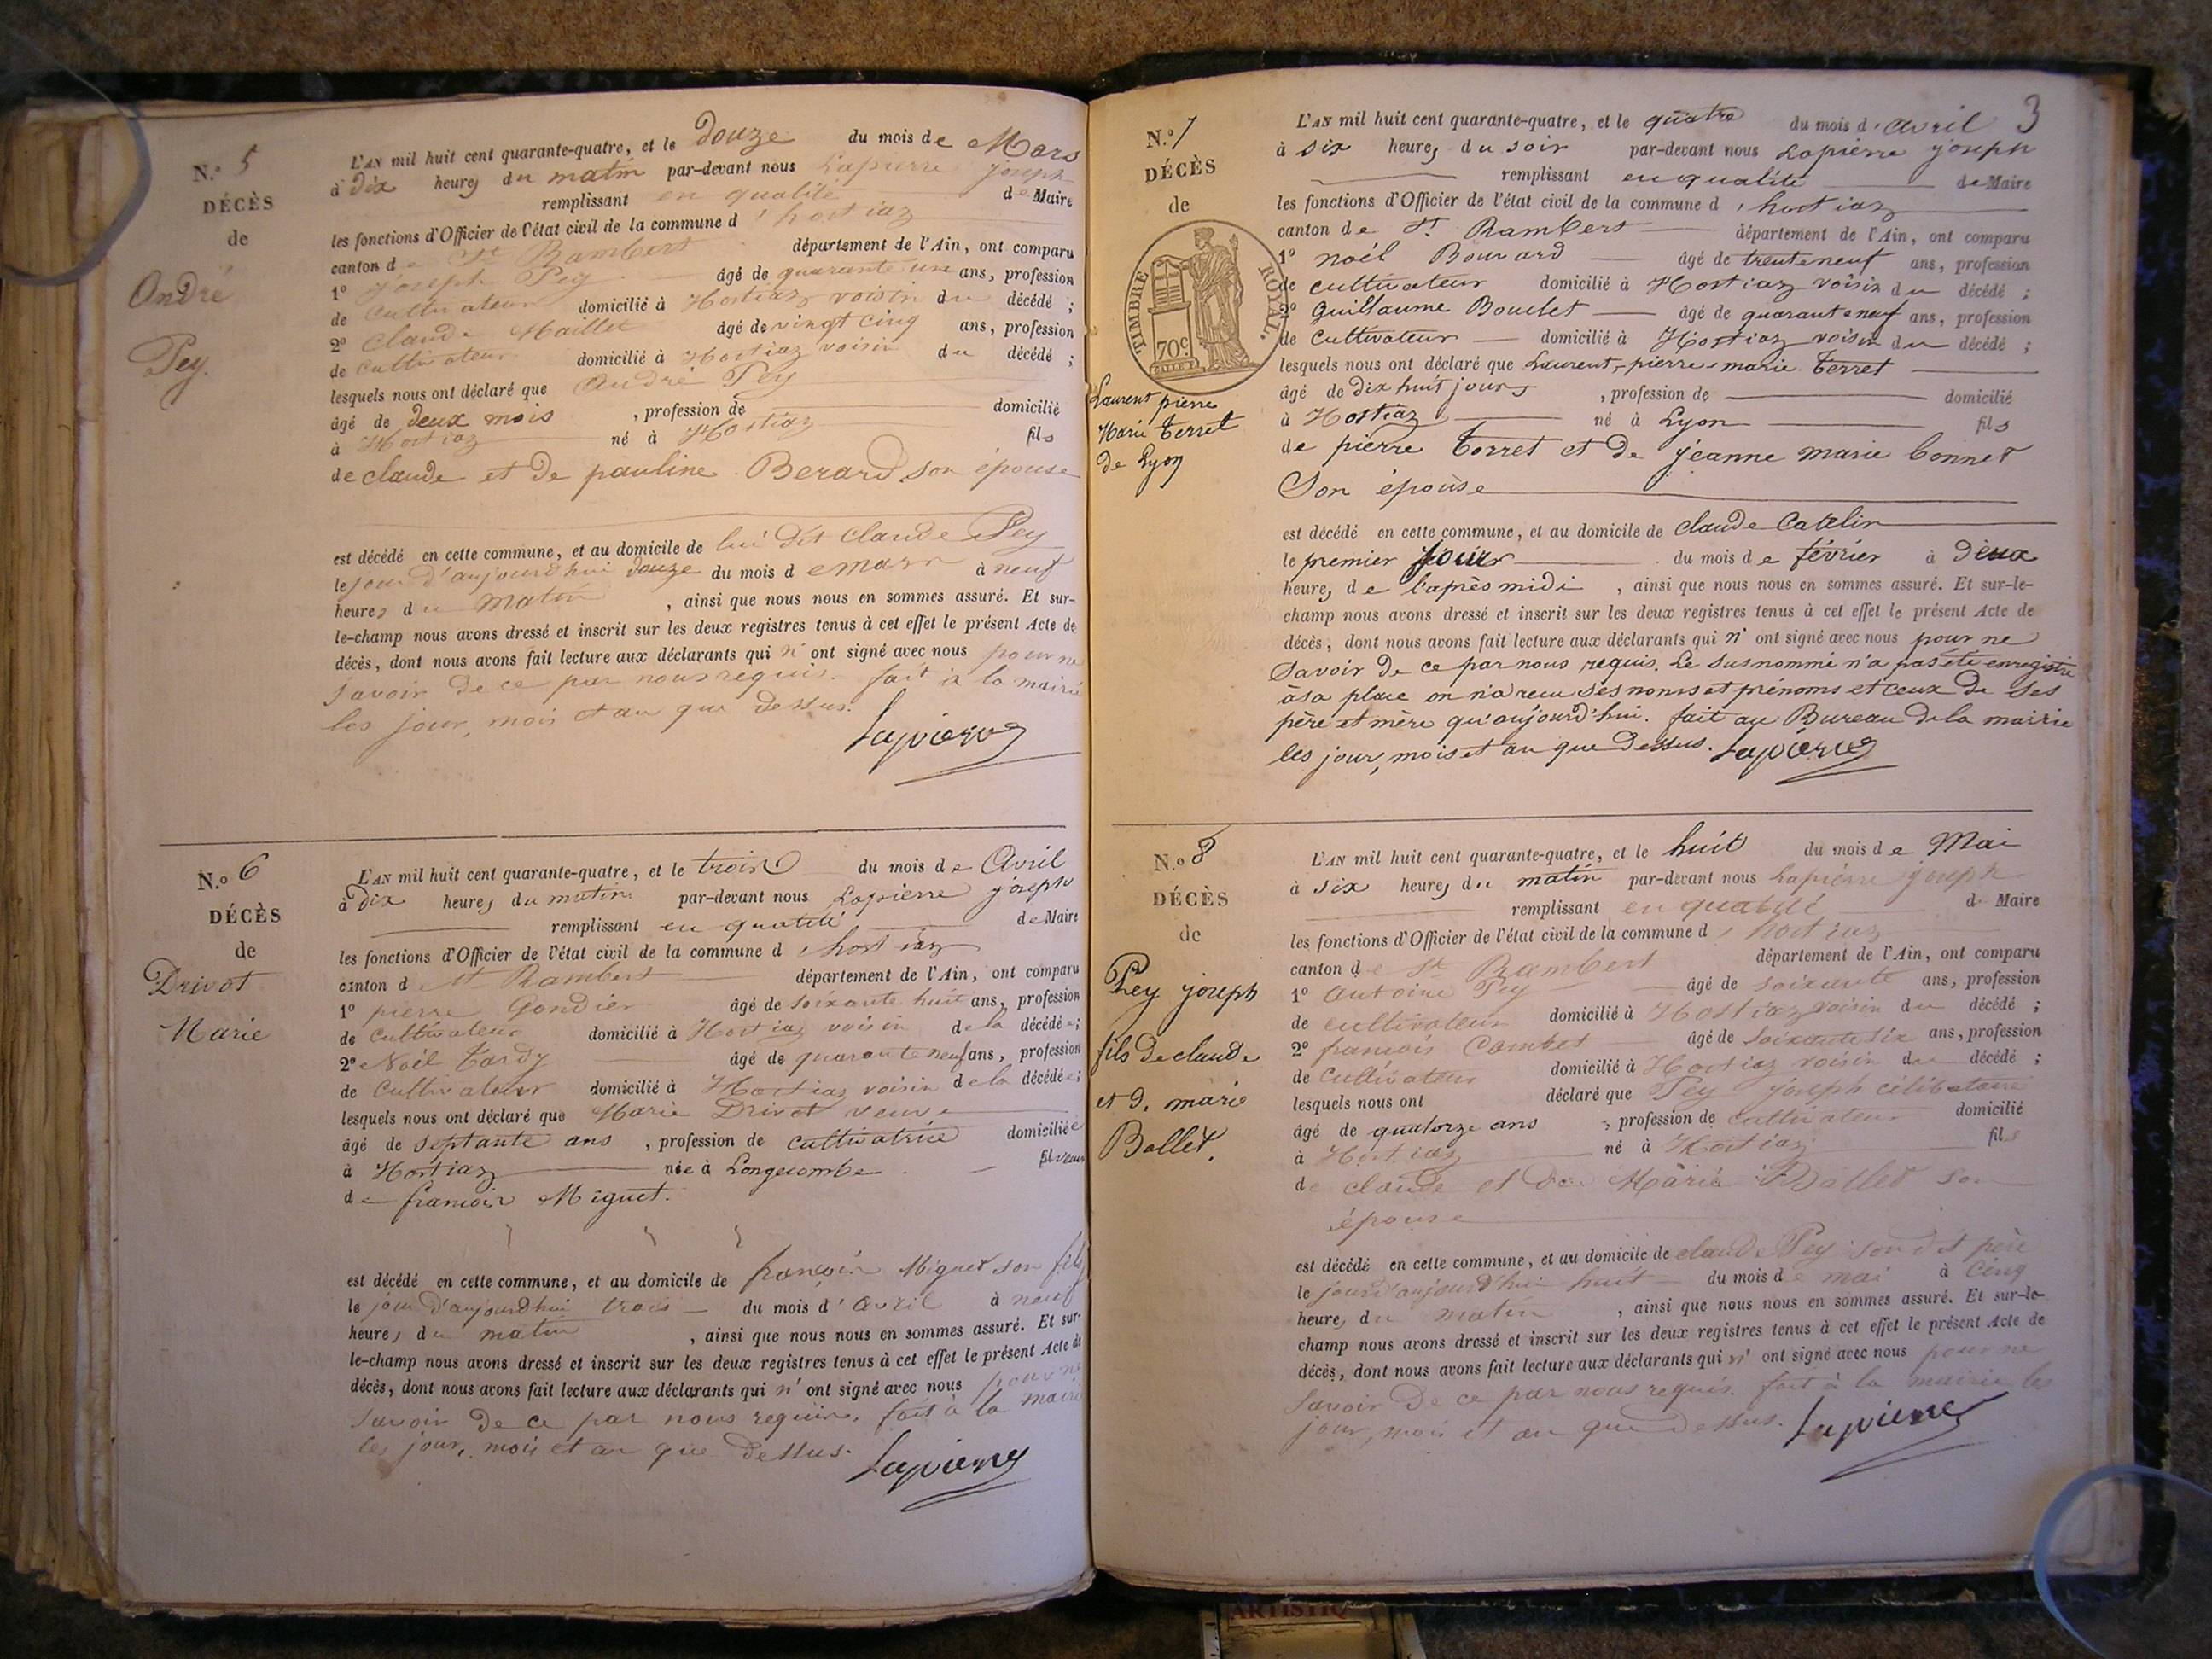 N.º 5
DÉCÈS
de
André
Pey.
L'AN mil huit cent quarante-quatre, et le douze du mois de Mars
à dix heures du matin par-devant nous Lapierre joseph
remplissant en qualité de Maire
les fonctions d'Officier de l'état civil de la commune d'hostiaz
canton de St Rambert département de l'Ain, ont comparu
1º joseph Pey âgé de quarante un ans, profession
de Cultivateur domicilié à Hostiaz voisin du décédé ;
2º Claude Maillet âgé de vingt cinq ans, profession
de Cultivateur domicilié à Hostiaz voisin du décédé ;
lesquels nous ont déclaré que André Pey
âgé de deux mois , profession de domicilié
à Hostiaz né à Hostiaz fils
de claude et de pauline Berard son épouse
est décédé en cette commune, et au domicile de lui dit Claude Pey
le jour d'aujourd'hui douze du mois de mars à neuf
heures du matin , ainsi que nous nous en sommes assuré. Et sur-
le-champ nous avons dressé et inscrit sur les deux registres tenus à cet effet le présent Acte de
décès, dont nous avons fait lecture aux déclarants qui n'ont signé avec nous pour ne
savoir de ce par nous requis. fait à la mairie
les jour, mois et an que dessus.
Lapierre
N.º 6
DÉCÈS
de
Drivot
Marie
L'AN mil huit cent quarante-quatre, et le trois du mois de Avril
à Dix heures du matin par-devant nous Lapierre joseph
remplissant en qualité de Maire
les fonctions d'Officier de l'état civil de la commune d'hostiaz
canton d St Rambert département de l'Ain, ont comparu
1º pierre Gondier âgé de soixante huit ans, profession
de Cultivateur domicilié à Hostiaz voisin de la décédée ;
2º Noël Tardy âgé de quarante neuf ans, profession
de Cultivateur domicilié à Hostiaz voisin de la décédée ;
lesquels nous ont déclaré que Marie Drivot veuve
âgé de septante ans , profession de cultivatrice domiciliée
à Hostiaz née à Longecombe fil veuve
de francois Miguet.
est décédé en cette commune, et au domicile de françois Miguet son fils
le jour d'aujourdhui trois du mois d'avril à neuf
heures du matin , ainsi que nous nous en sommes assuré. Et sur-
le-champ nous avons dressé et inscrit sur les deux registres tenus à cet effet le présent Acte de
décès, dont nous avons fait lecture aux déclarants qui n'ont signé avec nous pour ne
savoir de ce par nous requis. fait à la mairie
les jour, mois et an que dessus.
Lapierre
3
N.º 7
DÉCÈS
de
TIMBRE ROYAL.
70c
Laurent pierre
Marie Terret
de Lyon
L'AN mil huit cent quarante-quatre, et le quatre du mois d'avril
à six heures du soir par-devant nous Lapierre joseph
remplissant en qualité de Maire
les fonctions d'Officier de l'état civil de la commune d'hostiaz
canton de St. Rambert département de l'Ain, ont comparu
1º noël Bouvard âgé de trente neuf ans, profession
de cultivateur domicilié à Hostiaz voisin du décédé ;
2º Guillaume Boullet âgé de quarante neuf ans, profession
de Cultivateur domicilié à Hostiaz voisin du décédé ;
lesquels nous ont déclaré que Laurent-pierre-marie Terret
âgé de dix huit jours , profession de domicilié
à Hostiaz né à Lyon fils
de pierre Terret et de jeanne marie bonnet
Son épouse
est décédé en cette commune, et au domicile de claude Catelin
le premier jour du mois de février à deux
heures de l'après midi , ainsi que nous nous en sommes assuré. Et sur-le-
champ nous avons dressé et inscrit sur les deux registres tenus à cet effet le présent Acte de
décès, dont nous avons fait lecture aux déclarants qui n'ont signé avec nous pour ne
savoir de ce par nous requis. Le susnommé n'a pas été enregistré
à sa place on n'a reçu ses noms et prénoms et ceux de ses
père et mère qu'aujourd'hui. fait au Bureau de la mairie
les jour, mois et an que dessus. Lapierre
N.º 8
DÉCÈS
de
Pey joseph
fils de claude
et d. marie
Ballet.
L'AN mil huit cent quarante-quatre, et le huit du mois de Mai
à six heures du matin par-devant nous Lapierre joseph
remplissant en qualité de Maire
les fonctions d'Officier de l'état civil de la commune d'hostiaz
canton de St Rambert département de l'Ain, ont comparu
1º Antoine Pey âgé de soixante ans, profession
de cultivateur domicilié à Hostiaz voisin du décédé ;
2º francois Combet âgé de soixante six ans, profession
de Cultivateur domicilié à Hostiaz voisin du décédé ;
lesquels nous ont déclaré que Pey joseph célibataire
âgé de quatorze ans , profession de Cultivateur domicilié
à Hostiaz né à Hostiaz fils
de claude et de Marie Ballet son
épouse
est décédé en cette commune, et au domicile de claude Pey son dit père
le jour d'aujourd'hui huit du mois de mai à cinq
heures du matin , ainsi que nous nous en sommes assuré. Et sur-le-
champ nous avons dressé et inscrit sur les deux registres tenus à cet effet le présent Acte de
décès, dont nous avons fait lecture aux déclarants qui n'ont signé avec nous pour ne
savoir de ce par nous requis. fait à la mairie les
jour, mois et an que dessus. Lapierre
ARTISTIQ